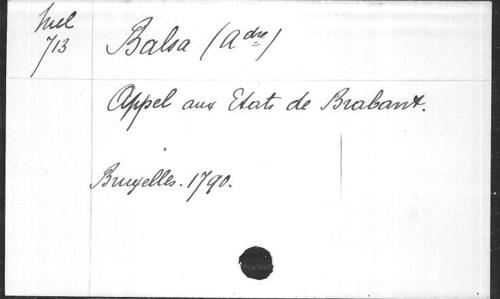 Mel
713
Balsa (Adre)
Appel aux Etats de Brabant.
Bruxelles. 1790.